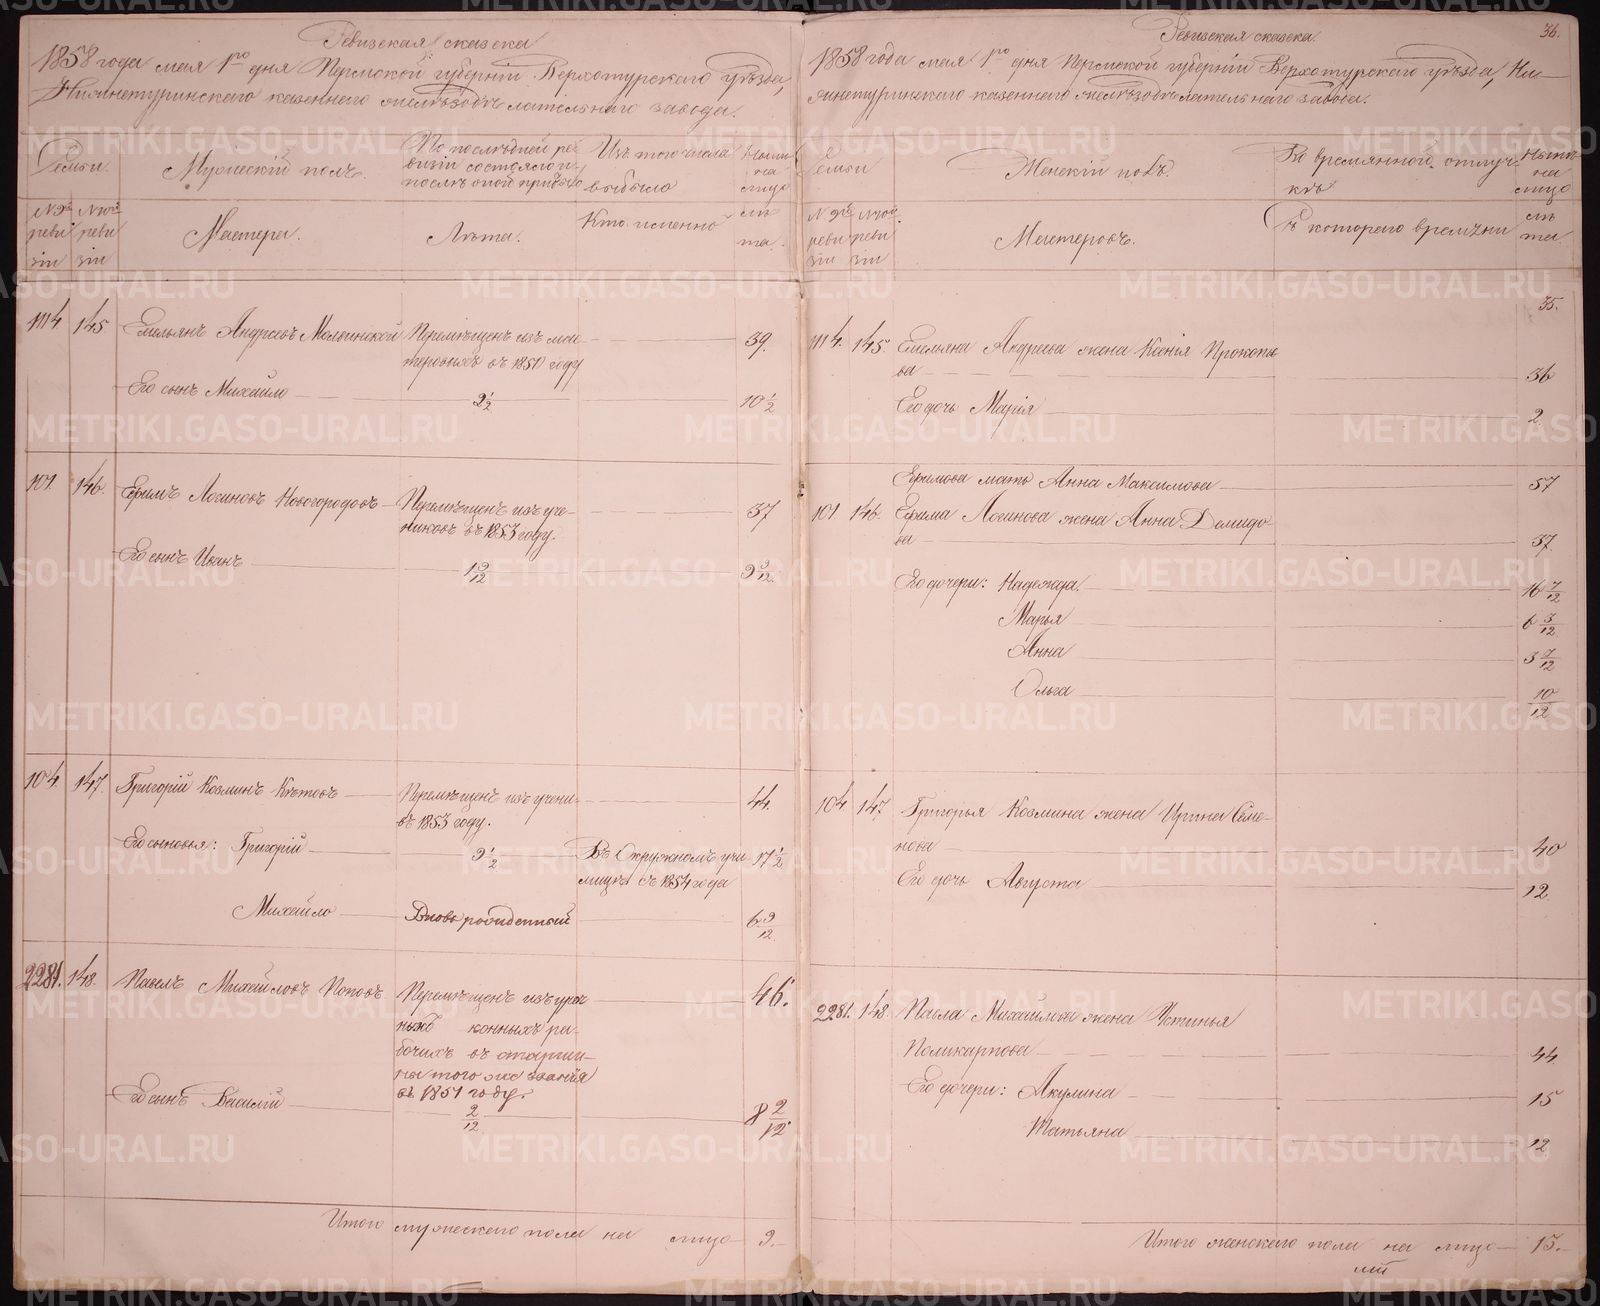 Ревизская сказка
1858 года мая 1го дня Пермской губерніи Верхотурскаго уѣзда,
Нижнетуринскаго казеннаго желѣзодѣлательнаго завода.
Семьи
Мужескій полъ.
По послѣдней ре-
визіи состояло и
послѣ оной прибыло
Изъ того числа
выбыло
Ныни
на
лицо
№ 9й
реви
зіи
№ 10й
реви
зіи
Мастера.
Лѣта.
Кто именно
лѣ
та.
1114
145
Емельянъ Андреевъ
Перемѣщенъ изъ мас-
теровыхъ въ 1851 году
39.
Его сынъ Михайло
2 1/2
10 1/2
101.
146.
Ефимъ Логиновъ Новогородовъ
Перемѣщенъ изъ уче-
никовъ въ 1853 году.
37
Его сынъ Иванъ
1 9/12
9 9/12.
104.
147.
Григорій Козминъ Кѣтовъ
Перемѣщенъ изъ учени-
въ 1853 году.
44.
Его сыновья: Григорій
9 1/2
Въ Окружномъ учи
лищѣ съ 1854 года
17 1/2
Михайло
Вновь рожденный
6 9/12
2281.
148.
Павелъ Михайловъ Поповъ
Перемѣщенъ изъ уроч
ныхъ конныхъ ра-
бочихъ въ старши-
ны того же званія
въ 1851 году.
46.
Его сынъ Василій
2/12
8 2/12
Итого мужескаго пола на лицо 9.
36.
Ревизская сказка.
1858 года мая 1го дня Пермской губерніи Верхотурскаго уѣзда, Ни-
жнетуринскаго казеннаго желѣзодѣлательнаго завода.
Семьи
Женскій полъ.
Въ времянной отлуч-
кѣ
Ныни
на
лицо
№ 9й
реви
зіи
№ 10й
реви
зіи
Мастеровъ.
Съ котораго времяни
лѣ
та.
35.
1114.
145.
Емельяна Андреева жена Ксенія Прокопь
ева
36
Его дочь Марія
2.
Ефимова мать Анна Максимова
57
101.
146.
Ефима Логинова жена Анна Демидо-
ва
37.
Его дочери: Надежда.
16 7/12
Марья
6 3/12
Анна
3 7/12
Ольга
10/12
104
147.
Григорья Козмина жена Ирина Семе-
нова
40
Его дочь Августа
12.
2281.
148.
Павла Михайлова жена Устинья
Поликарпова
44
Его дочери: Акулина
15
Татьяна
12
Итого женскаго пола на лицо 13.
METRIKI.GASO-URAL.RU